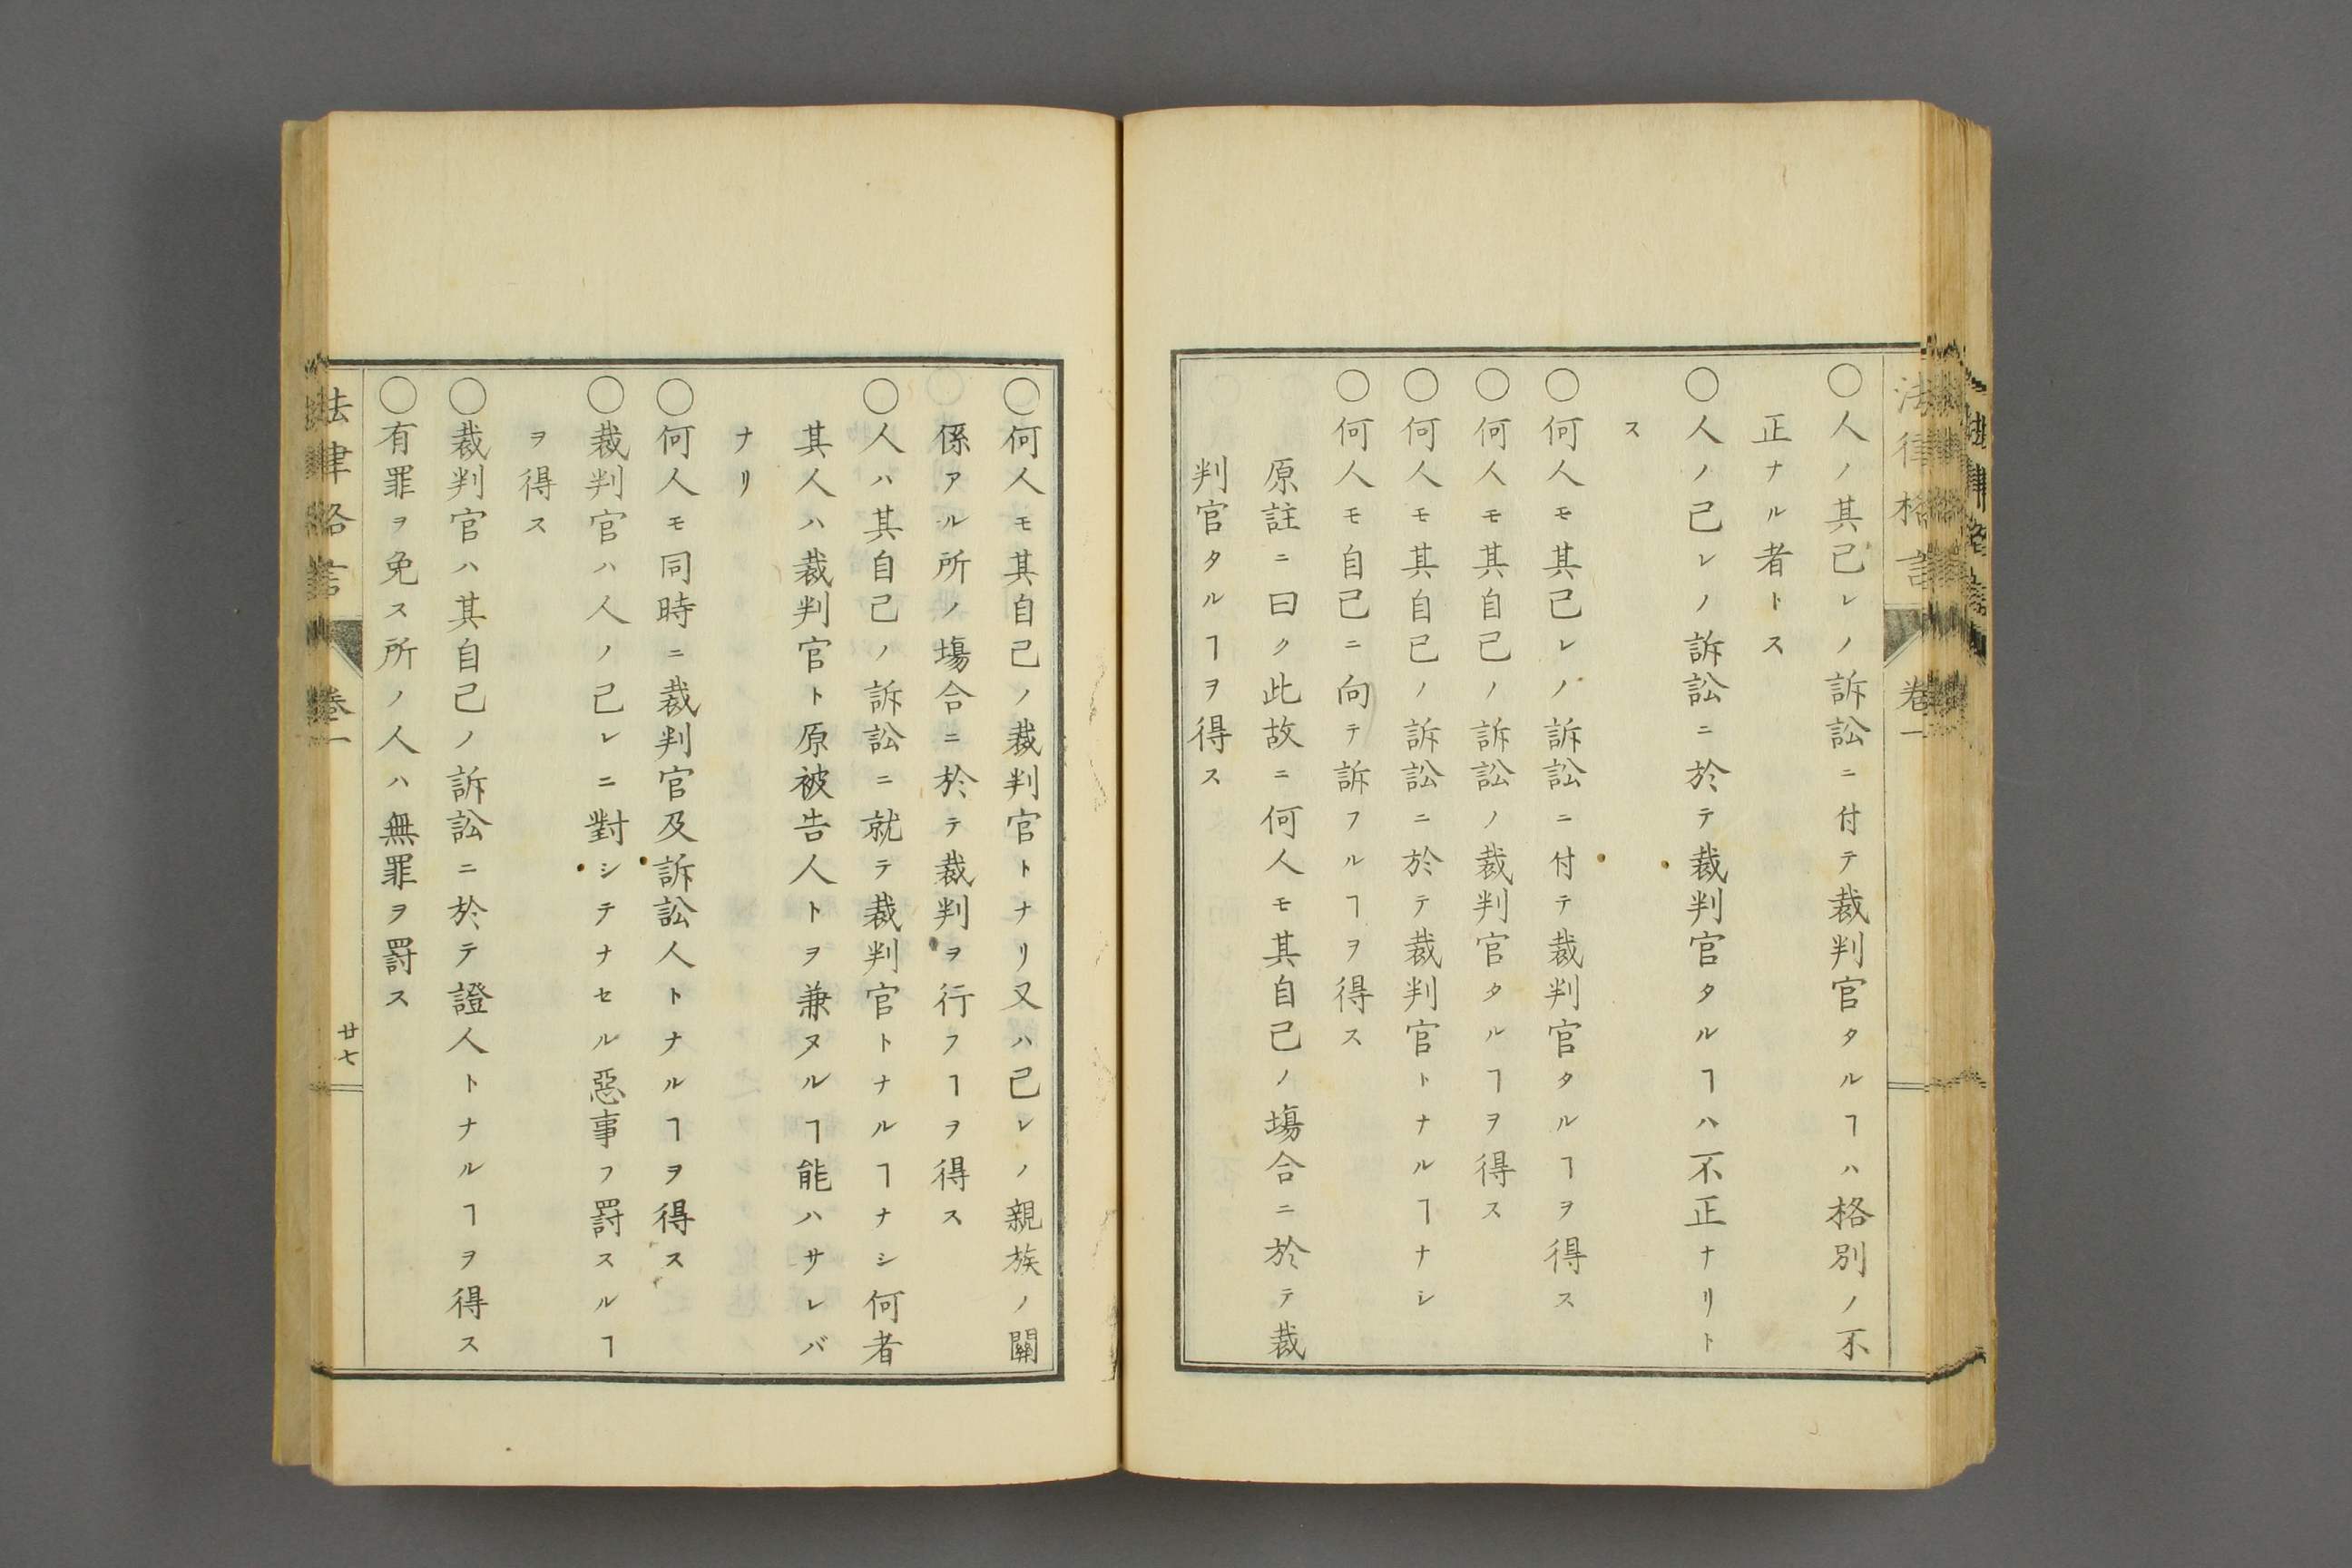 法律格言 卷一
○人ノ其己レノ訴訟ニ付テ裁判官タルヿハ格別ノ不
正ナル者トス
○人ノ己レノ訴訟ニ於テ裁判官タルヿハ不正ナリト
ス
○何人モ其己レノ訴訟ニ付テ裁判官タルヿヲ得ス
○何人モ其自己ノ訴訟ノ裁判官タルヿヲ得ス
○何人モ其自己ノ訴訟ニ於テ裁判官トナルヿナシ
○何人モ自己ニ向テ訴フルヿヲ得ス
原註ニ曰ク此故ニ何人モ其自己ノ塲合ニ於テ裁
判官タルヿヲ得ス
○何人モ其自己ノ裁判官トナリ又ハ己レノ親族ノ關
係アル所ノ塲合ニ於テ裁判ヲ行フヿヲ得ス
○人ハ其自己ノ訴訟ニ就テ裁判官トナルヿナシ何者
其人ハ裁判官ト原被告人トヲ兼ヌルヿ能ハサレバ
ナリ
○何人モ同時ニ裁判官及訴訟人トナルヿヲ得ス
○裁判官ハ人ノ己レニ對シテナセル惡事フ罸スルヿ
ヲ得ス
○裁判官ハ其自己ノ訴訟ニ於テ證人トナルヿヲ得ス
○有罪ヲ免ス所ノ人ハ無罪ヲ罸ス
法律格言 卷一 廿七